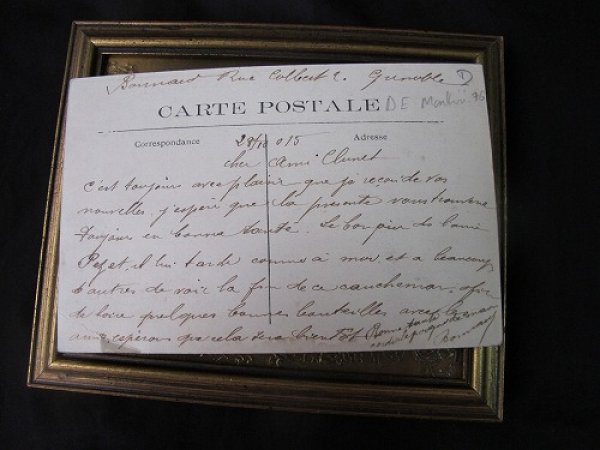 Bonnard Rue Colbert 2. Grenoble D
CARTE POSTALE DE
Correspondance 28/10 015 Adresse
cher Ami Clunet
c'est toujours avec plaisir que je recoi de vos
nouvelles. j'espère que la présente vous trouvera
toujours en bonne santé. Le bonjour de l'ami
Pezat, il lui tarde comme à moi et a beaucoup
d'autres de voir la fin de ce cauchemar, afin
de boire quelques bonnes bouteilles avec les
amis, espérons que cela sera bientôt Bonne santé
cordiale poignée de main
Bonnard